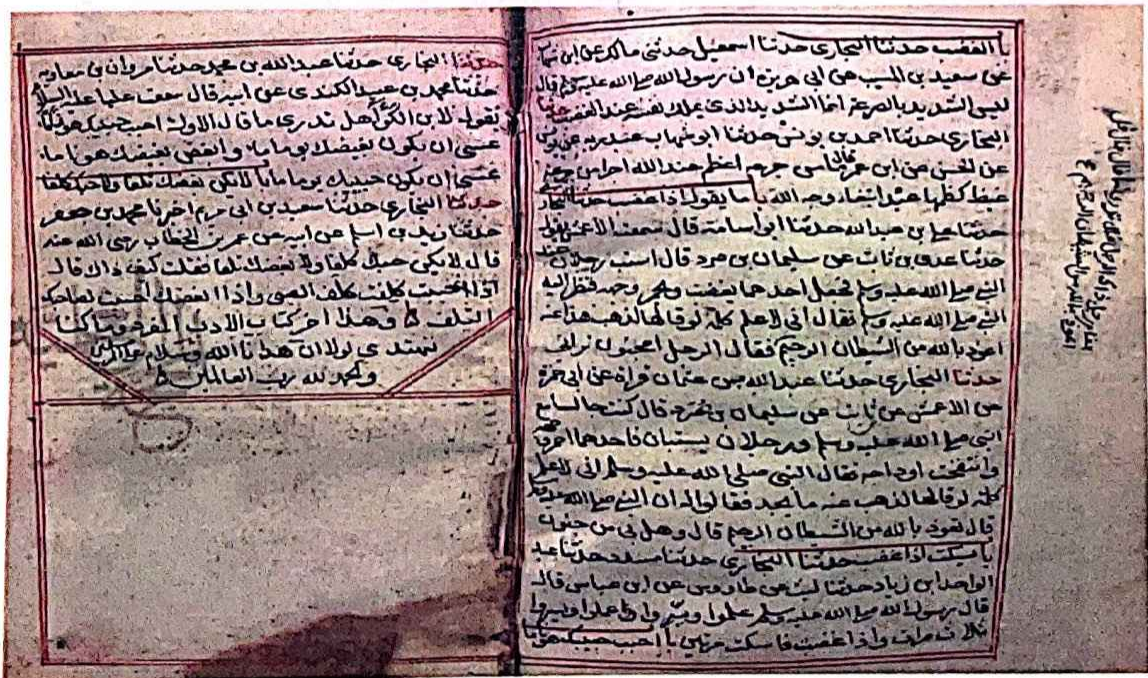 با الغضب حدثنا البخاري حدثنا اسمعيل حدثني مالك عن ابن شهاب
عن سعيد بن المسيب عن ابي هريرة ان رسول الله صلى الله عليه وسلم قال
ليس الشديد بالصرعة انما الشديد الذي يملك نفسه عند الغضب حدثنا
البخاري حدثنا احمد بن يونس حدثنا ابو شهاب عبد ربه عن يونس
عن الحسن عن ابن عمر قال ما من جرعة اعظم عند الله اجرا من جرعة
غيظ كظمها عبد ابتغاء وجه الله با ما يقول اذا غضب حدثنا البخاري
حدثنا علي بن عبد الله حدثنا ابو اسامة قال سمعت الاعمش يقول
حدثنا عدي بن ثابت عن سليمان بن صرد قال استب رجلان عند
النبي صلى الله عليه وسلم فجعل احدهما يغضب ويحمر وجهه فنظر اليه
النبي صلى الله عليه وسلم فقال اني لاعلم كلمة لو قالها لذهب هذا عنه
اعوذ بالله من الشيطان الرجيم فقام الرجل
حدثنا البخاري حدثنا عبد الله بن عثمان قراة عن ابي حمزة
عن الاعمش عن ثابت عن سليمان بن صرد قال كنت جالسا مع
النبي صلى الله عليه وسلم ورجلان يستبان فاحدهما احمر وجهه
وانتفخت اوداجه فقال النبي صلى الله عليه وسلم اني لاعلم
كلمة لو قالها لذهب عنه ما يجد فقالوا له ان النبي صلى الله عليه وسلم
قال تعوذ بالله من الشيطان الرجيم قال وهل بي من جنون
با يسكت اذا غضب حدثنا البخاري حدثنا مسدد حدثنا عبد
الواحد ابن زياد حدثنا ليث عن طاوس عن ابن عباس قال
قال رسول الله صلى الله عليه وسلم علموا ويسروا علموا ويسروا
ثلاث مرات واذا غضبت فاسكت مرتين با احبب حبيبك هونا ما
حدثنا البخاري حدثنا عبد الله بن محمد حدثنا مروان بن معاوية
حدثنا محمد بن عبيد الكندي عن ابيه قال سمعت عليا عليه السلام
يقول لابن الكواء هل تدري ما قال الاول احبب حبيبك هونا ما
عسى ان يكون بغيضك يوما ما وابغض بغيضك هونا ما
عسى ان يكون حبيبك يوما ما با لا يكن بغضك تلفا ولا حبك كلفا
حدثنا البخاري حدثنا سعيد بن ابي مريم اخبرنا محمد بن جعفر
حدثنا زيد بن اسلم عن ابيه عن عمر بن الخطاب رضي الله عنه
قال لا يكن حبك كلفا ولا بغضك تلفا فقلت كيف ذاك قال
اذا احببت كلفت كلف الصبي واذا ابغضت احببت لصاحبك
التلف وهذا اخر كتاب الادب المفرد وما كنا
لنهتدي لولا ان هدانا الله وسلام على المرسلين
والحمد لله رب العالمين